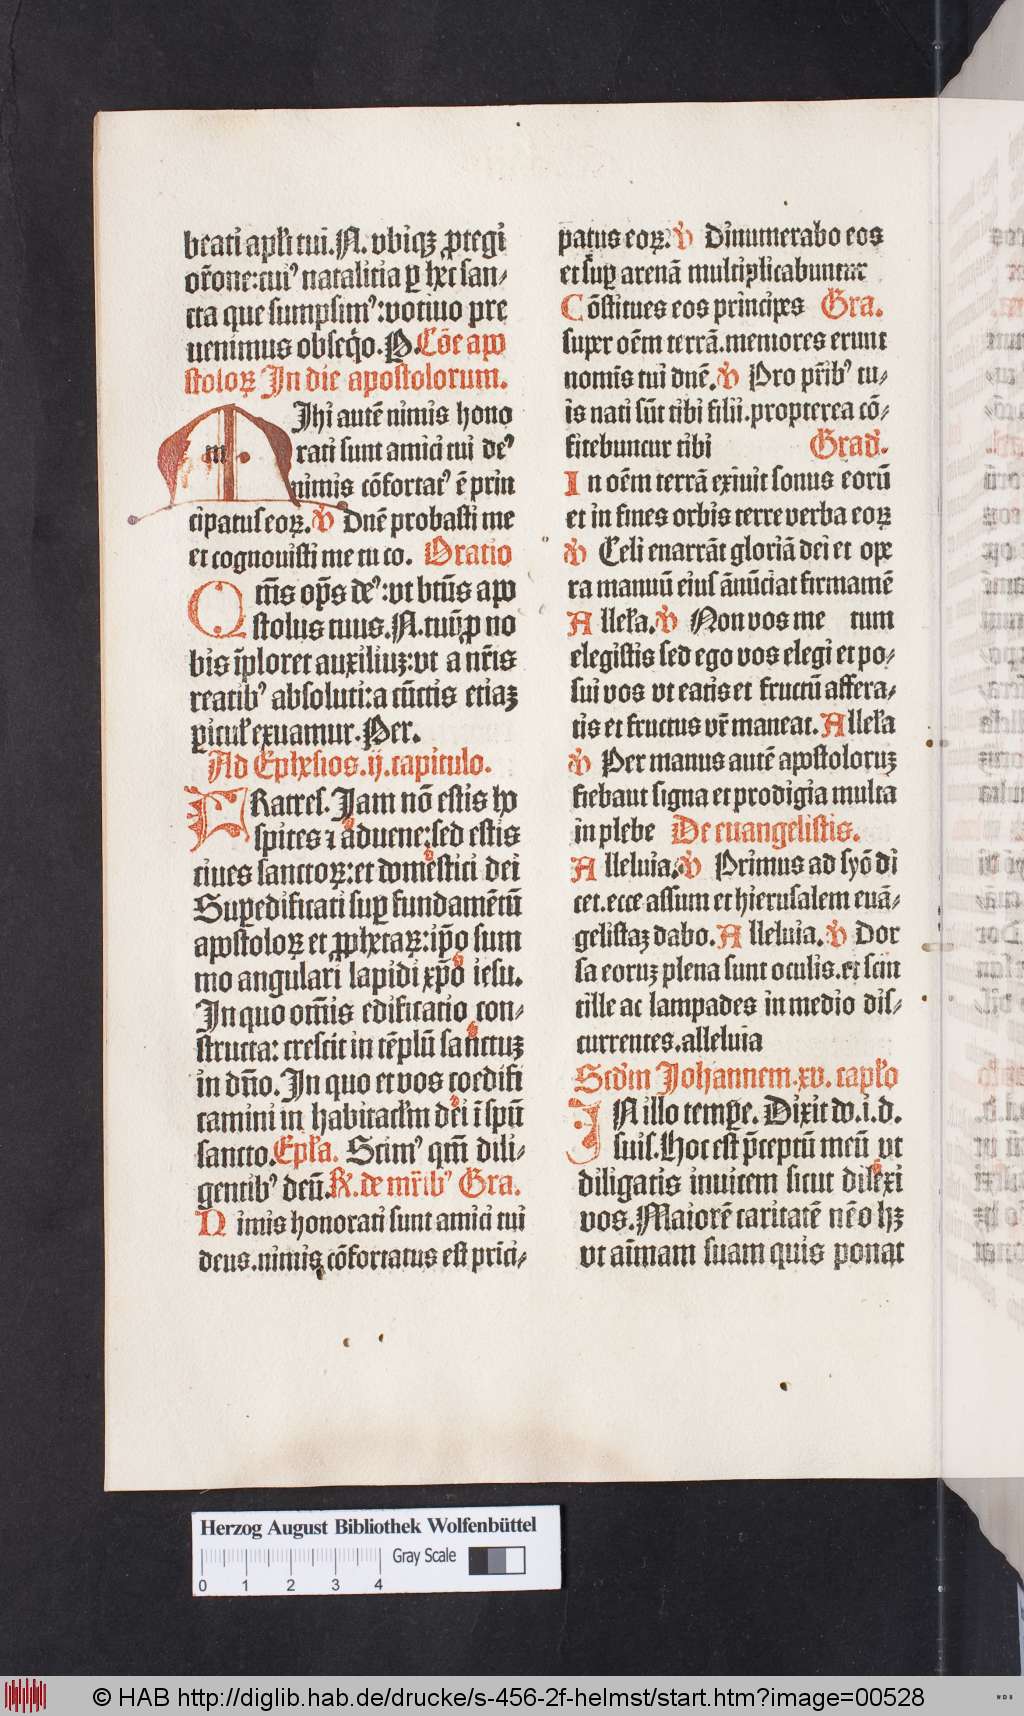 beati apl̄i tui. N. vbiqꝫ ꝓtegi
or̄one: cuiꝰ natalicia ꝑ hec san⸗
cta que sumpsimꝰ: votiuo pre
uenimus obseq̇o. P. Cōe apo
stoloꝝ In die apostolorum.
Mihi autē nimis hono
rati sunt amici tui deꝰ
nimis cōfortatꝰ ē prin
cipatus eoꝝ. ℣ Dn̄e probasti me
et cognouisti me tu co. Oratio
Qm̄s op̄s deꝰ: vt bt̄us apo
stolus tuus. N. tuū ꝓ no
bis īploret auxiliuꝫ: vt a nr̄is
reatibꝰ absoluti: a cūctis etiaꝫ
ꝑicul̄ exuamur. Per.
Ad Ephesios. ij. capitulo.
FRatres. Jam nō estis ho
spites ⁊ aduene: sed estis
ciues sanctoꝝ: et domestici dei
Suꝑedificati suꝑ fundamētū
apostoloꝝ et ꝓphetaꝝ: ip̄o sum
mo angulari lapidi xp̄o iesu.
In quo om̄is edificatio con⸗
structa: crescit in tēplū sanctuꝫ
in dn̄o. In quo et vos coedifi
camini in habitacl̄m dei ī spū
sancto. Epl̄a. Scimꝰ qm̄ dili⸗
gentibꝰ deū. R̄. de mr̄ibꝰ Gra.
Nimis honorati sunt amici tui
deus. nimis cōfortatus est prīci⸗
patus eoꝝ. ℣ Dinumerabo eos
et suꝑ arenā multiplicabuntur
Cōstitues eos principes Gra.
super oēm terrā. memores erunt
nomīs tui dn̄e. ℣ Pro pr̄ibꝰ tu⸗
is nati sūt tibi filii. propterea cō⸗
fitebuntur tibi Grad̄.
In oēm terrā exiuit sonus eorū
et in fines orbis terre verba eoꝝ
℣ Celi enarrāt gloriā dei et ope
ra manuū eius ānūciat firmamē
Allel̄a. ℣ Non vos me tum
elegistis sed ego vos elegi et po⸗
sui vos vt eatis et fructū affera⸗
tis et fructus vr̄ maneat. Allel̄a
℣ Per manus autē apostoloruꝫ
fiebant signa et prodigia multa
in plebe De euangelistis.
Alleluia. ℣ Primus ad syō di
cet. ecce assum et hierusalem euā⸗
gelistaꝫ dabo. Alleluia. ℣ Dor
sa eoruꝫ plena sunt oculis. et scin
tille ac lampades in medio dis⸗
currentes. alleluia
Scd̄m Johannem. xv. capl̄o
IN illo tempe. Dixit do. i. d.
suis. Hoc est p̄ceptū meū vt
diligatis inuicem sicut dilexi
vos. Maiorē caritatē nēo hꝫ
vt aīmam suam quis ponat
Herzog August Bibliothek Wolfenbüttel
Gray Scale
0 1 2 3 4
© HAB http://diglib.hab.de/drucke/s-456-2f-helmst/start.htm?image=00528